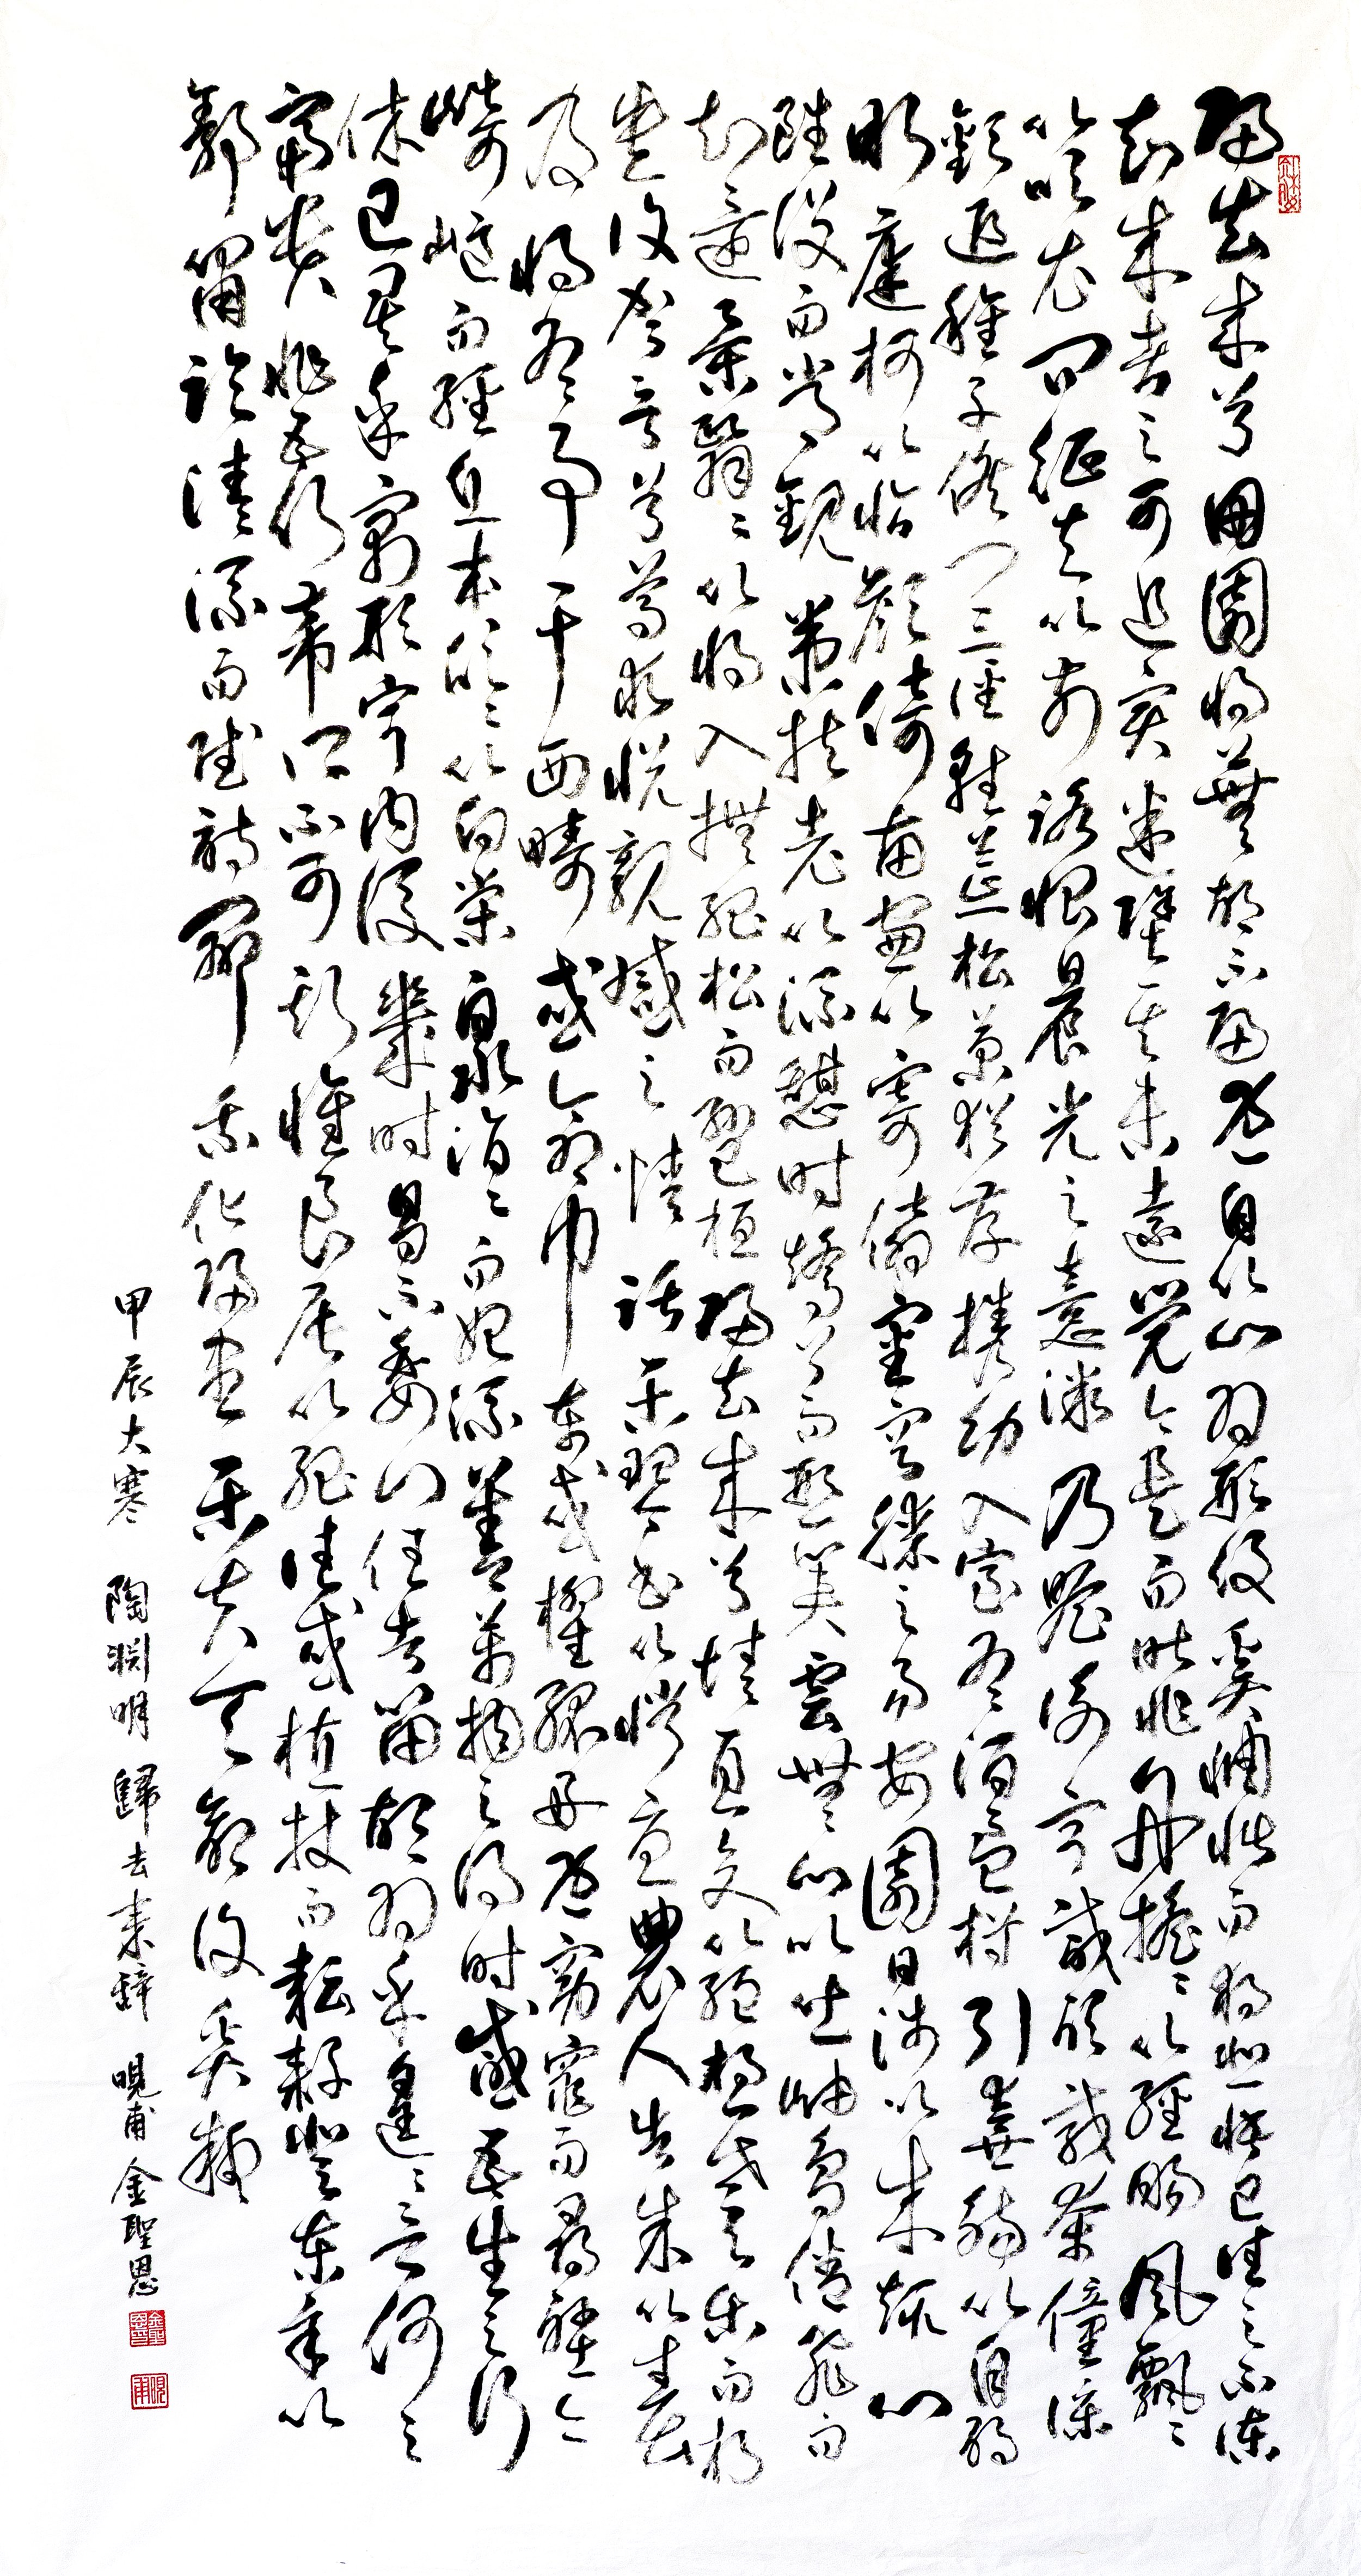 歸去來兮田園將蕪胡不歸既自以心為形役奚惆悵而獨悲悟已往之不諫
知來者之可追實迷塗其未遠覺今是而昨非舟搖〻以輕颺風飄〻
以吹衣問征夫以前路恨晨光之熹微乃瞻衡宇載欣載奔僮僕
歡迎稚子候門三徑就荒松菊猶存攜幼入室有酒盈樽引壺觴以自酌
眄庭柯以怡顏倚南窗以寄傲審容膝之易安園日涉以成趣門
雖設而常觀策扶老以流憩時矯首而遐觀雲無心以出岫鳥倦飛而
知還景翳〻以將入撫孤松而盤桓歸去來兮請息交以絕遊世與我而相
遺復駕言兮焉求悅親戚之情話樂琴書以消憂農人告余以春
及將有事于西疇或命巾車或棹孤舟既窈窕而尋壑亦
崎嶇而經丘木欣〻以向榮泉涓〻而始流善萬物之得時感吾生之行
休已矣乎寓形宇內復幾時曷不委心任去留胡為乎遑〻欲何之
富貴非吾願帝鄉不可期懷良辰以孤往或植杖而耘耔登東皋以
舒嘯臨清流而賦詩聊乘化歸盡樂夫天命復奚疑
甲辰大寒 陶淵明歸去來辭 晛甫 金聖恩